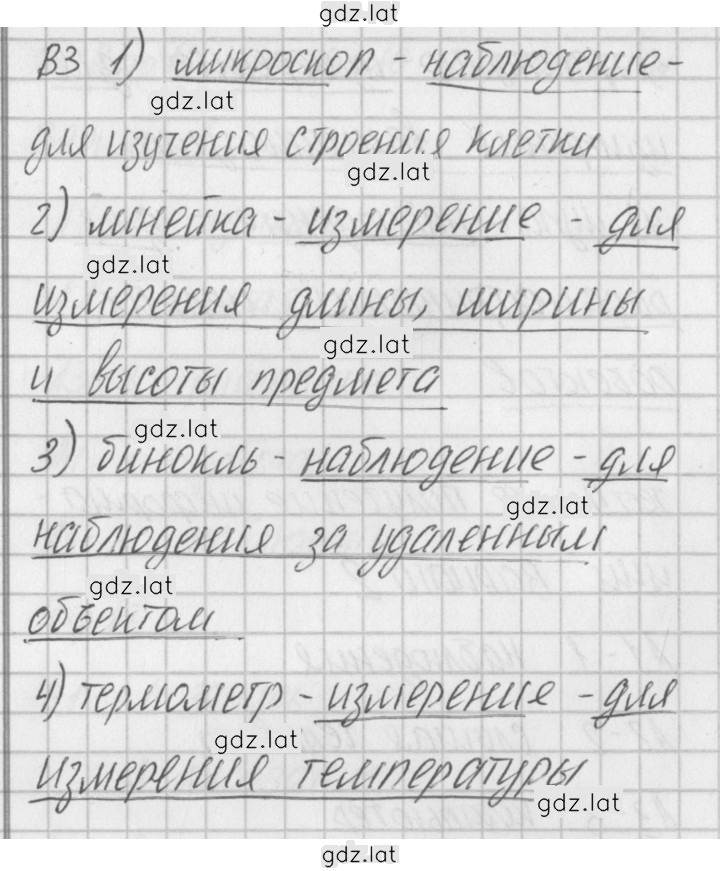 gdz.lat
В3 1) микроскоп - наблюдение -
gdz.lat
для изучения строения клетки
gdz.lat
2) линейка - измерение - для
gdz.lat
измерения длины, ширины
gdz.lat
и высоты предмета
gdz.lat
3) бинокль - наблюдение - для
gdz.lat
наблюдения за удаленным
gdz.lat
объектом
4) термометр - измерение - для
gdz.lat
измерения температуры
gdz.lat
gdz.lat